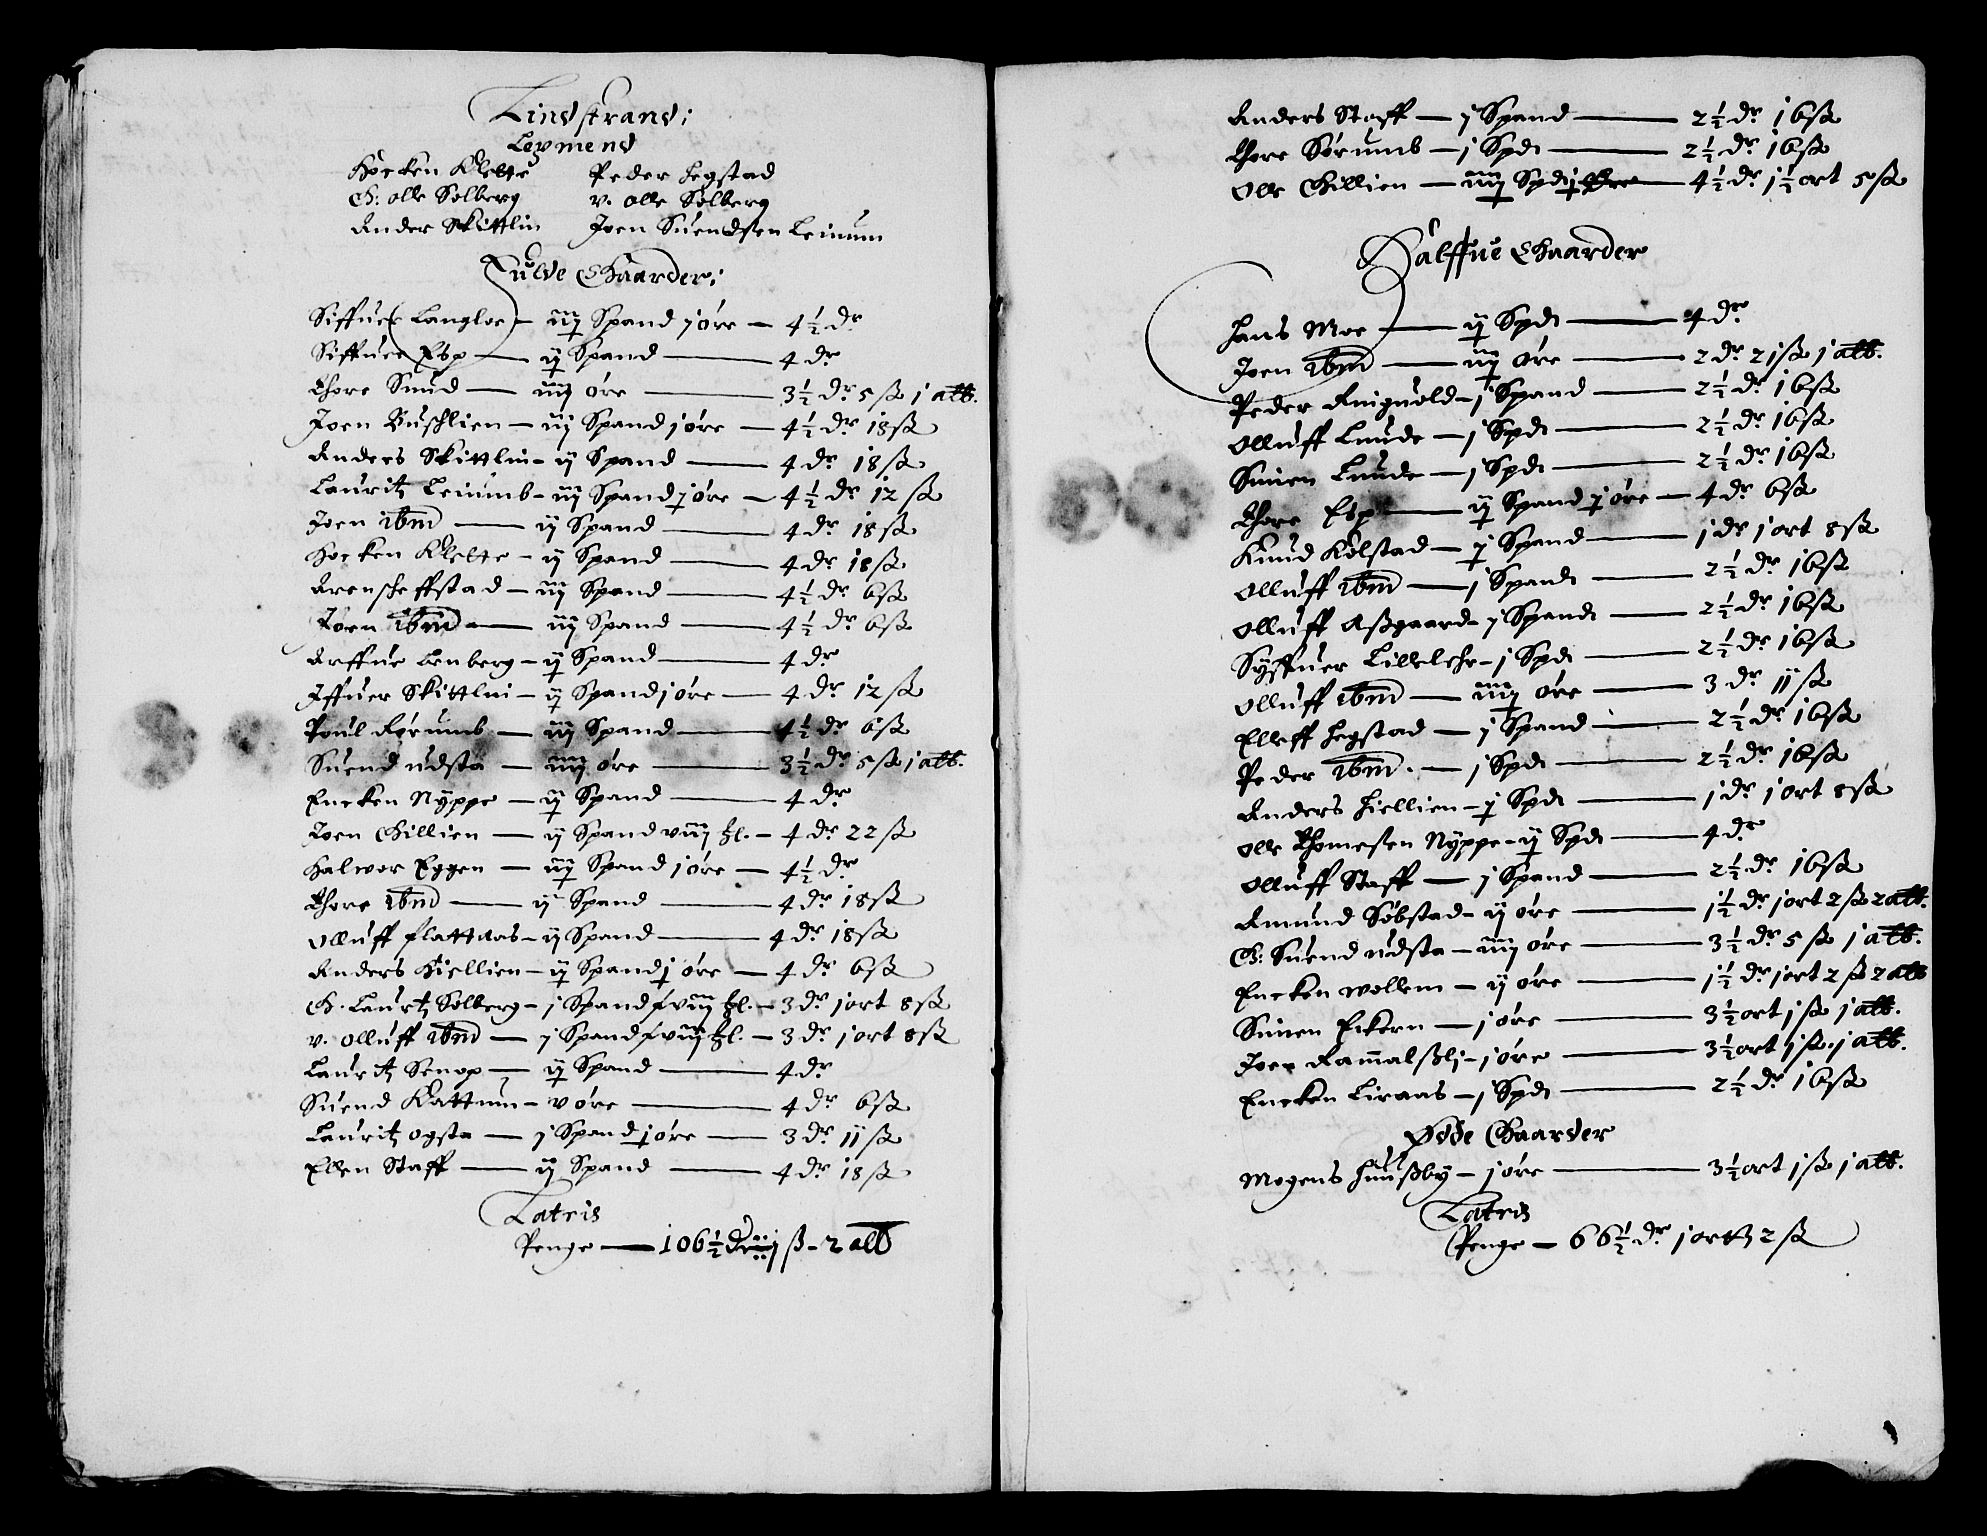 Lindstrand:
Leymend
Hocken Klette Peder Hegstad
G: Olle Solberg v. Olle Solberg
Ander Skittlin Joen Suendsen Leinum
Fulde Gaarder:
Siffuer Langloe — iij Spand j øre — 4½ dr
Siffuer Esp — ij Spand — 4 dr
Thore Suud — iiij øre — 3½ dr 5 ß j alb.
Joen Buschlien — iij Spand j øre — 4½ dr 18 ß
Anders Skittlin — ij Spand — 4 dr 18 ß
Lauritz Leiumb — iij Spand j øre — 4½ dr 12 ß
Joen ibm — ij Spand — 4 dr 18 ß
Hocken Klette — ij Spand — 4 dr 18 ß
Arenscheffstad — iij Spand — 4½ dr 6 ß
Joen ibm — iij Spand — 4½ dr 6 ß
Arffue Lenberg — ij Spand — 4 dr
Iffuer Skittlin — ij Spand j øre — 4 dr 12 ß
Poul Rørumb — iij Spand — 4½ dr 6 ß
Suend udsta — iiij øre — 3½ dr 5 ß j alb.
Encken Nyppe — ij Spand — 4 dr
Joen Gillien — ij Spand viij hl. — 4 dr 22 ß
Halvor Eggen — iij Spand j øre — 4½ dr
Thore ibm — ij Spand — 4 dr 18 ß
Olluff flattaas — ij Spand — 4 dr 18 ß
Anders Kiellien — ij Spand j øre — 4 dr 6 ß
G. Lauritz Solberg — j Spand xviij hl. — 3 dr j ort 8 ß
v. Olluff ibm — j Spand xviij hl. — 3 dr j ort 8 ß
Lauritz Senop — ij Spand — 4 dr
Suend Kattum — v øre — 4 dr 6 ß
Lauritz ogsta — j Spand j øre — 3 dr ij ß
Ellen Staff — ij Spand — 4 dr 18 ß
Lateris
Penge — 106½ dr j ß - 2 alb
Anders Staff — j Spand — 2½ dr 16 ß
Thore Sørumb — j Spd — 2½ dr 16 ß
Olle Gillien — iiij Spd j øre — 4½ dr j½ ort 5 ß
Halffue Gaarder
Hans Moe — ij Spd — 4 dr
Joen ibm — iij øre — 2 dr 21 ß j alb.
Peder Ringuold — j Spand — 2½ dr 16 ß
Olluff Luude — j Spd — 2½ dr 16 ß
Simen Luude — j Spd — 2½ dr 16 ß
Thore Esp — ij Spand j øre — 4 dr 6 ß
Knud Kolstad — j Spand — j dr j ort 8 ß
Olluff ibm — j Spand — 2½ dr 16 ß
Olluff Aßgaard — j Spand — 2½ dr 16 ß
Syffuer Lillelehr — j Spd — 2½ dr 16 ß
Olluff ibm — iiij øre — 3 dr ij ß
Elleff Hegstad — j Spand — 2½ dr 16 ß
Peder ibm. — j Spd — 2½ dr 16 ß
Anders Hiellien — j Spd — j dr j ort 8 ß
Olle Thomesen Nyppe — ij Spd — 4 dr
Olluff Staff — j Spand — 2½ dr 16 ß
Amund Søbstad — ij øre — j½ dr j ort 2 ß 2 alb.
G: Suend udsta — iiij øre — 3½ dr 5 ß j alb.
Encken Wollem — ij øre — j½ dr j ort 2 ß 2 alb
Simen Eckern — j øre — 3½ ort j ß j alb.
Joen Rammalßli — j øre — 3½ ort j ß j alb.
Encken Liraas — j Spd — 2½ dr 16 ß
Ødde Gaarder
Mogens Huußby — j øre — 3½ ort j ß j alb.
Lateris
Penge — 66½ dr j ortt 2 ß